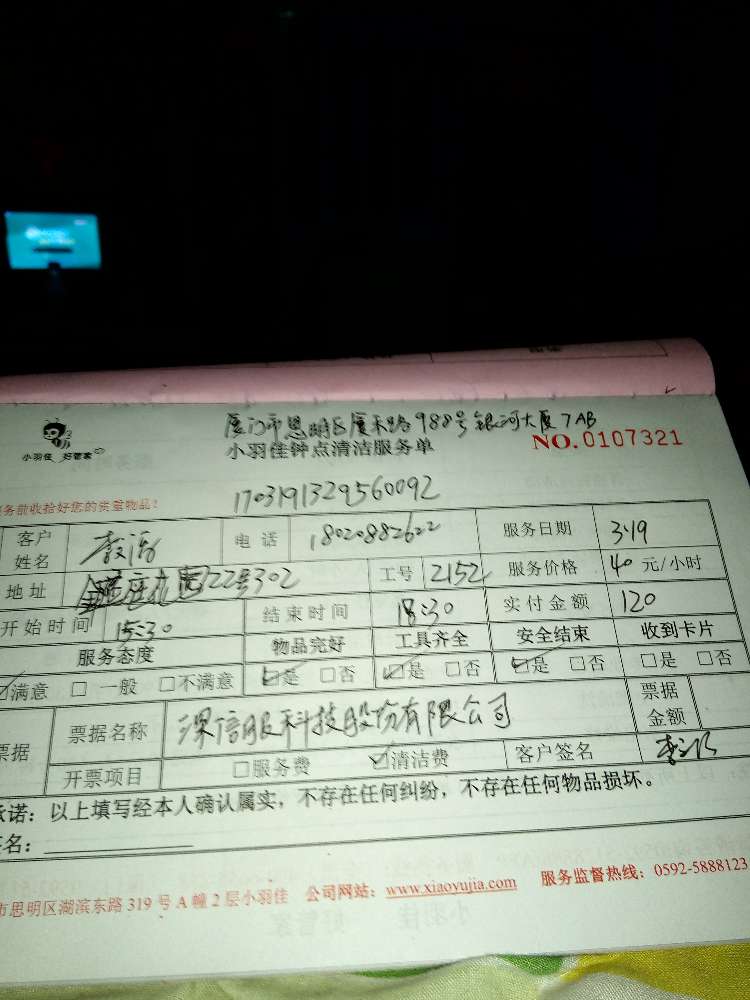 厦门市思明区厦禾路988号银河大厦7AB
小羽佳 好管家
小羽佳钟点清洁服务单
NO.0107321
务前收拾好您的贵重物品!
1703191329560092
客户姓名 电话 18020882622 服务日期 3.19
地址 22号302 工号 2152 服务价格 40 元/小时
开始时间 15:30 结束时间 18:30 实付金额 120
服务态度 物品完好 工具齐全 安全结束 收到卡片
☑满意 □ 一般 □不满意 ☑是 □否 ☑是 □否 ☑是 □否 □是 □否
票据 票据名称 深信服科技股份有限公司 票据金额
开票项目 □服务费 ☑清洁费 客户签名
承诺：以上填写经本人确认属实，不存在任何纠纷，不存在任何物品损坏。
签名：
市思明区湖滨东路 319 号 A 幢 2 层小羽佳 公司网站：www.xiaoyujia.com 服务监督热线：0592-5888123